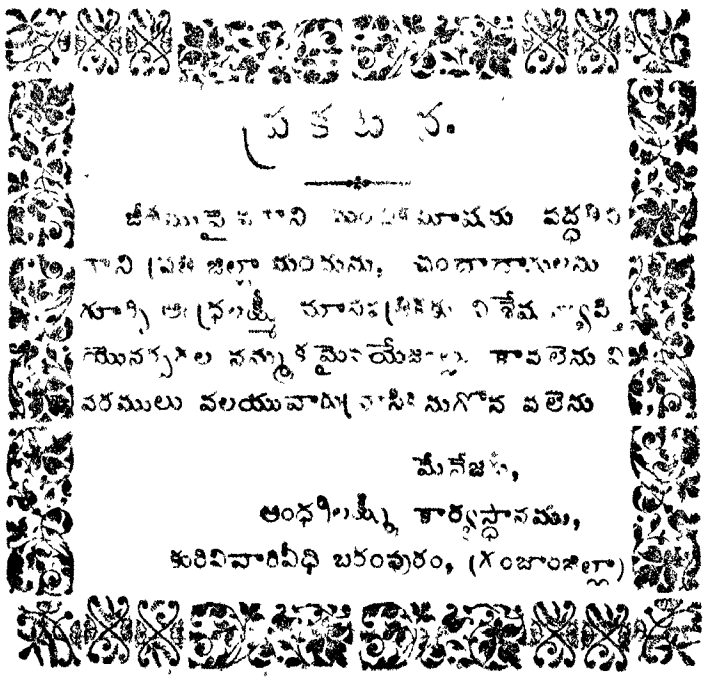 ప్రకటన.
జీతముపైనగాని కమిషను పద్ధతిని
గాని ప్రతి జిల్లా యందును, చందాదారులను
గూర్చి ఆంధ్రలక్ష్మీ మాసపత్రికకు విశేష వ్యాప్తి
నమ్మకమైన యేజంట్లు కావలెను వి
వరములు వలయువారు వ్రాసి కనుగొన వలెను
మేనేజరు,
ఆంధ్రలక్ష్మీ కార్యస్థానము,
కురివివారివీధి బరంపురం, (గంజాంజిల్లా)